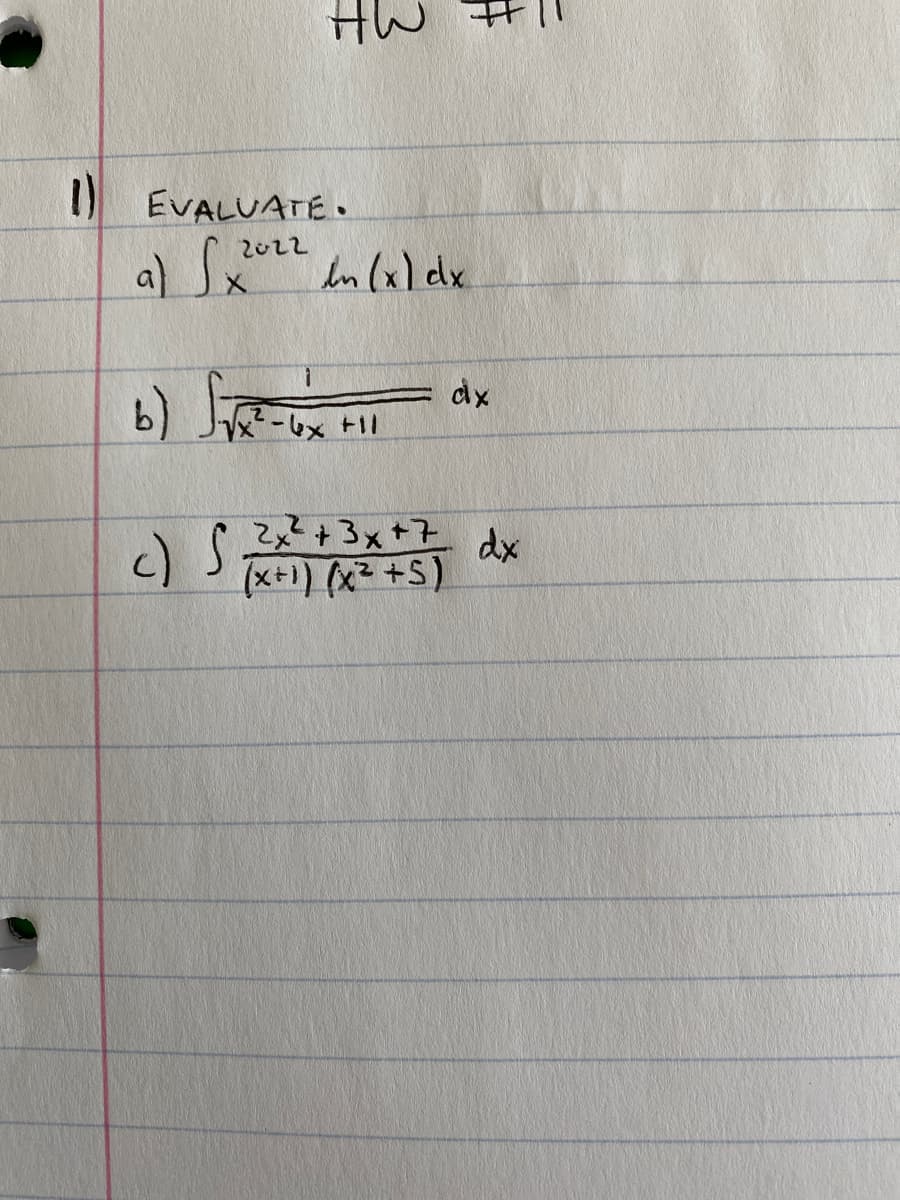 HW #11
1) EVALUATE.
a) ∫ x^2022 ln(x) dx
b) ∫ 1/√(x²-6x+11) dx
c) ∫ (2x²+3x+7)/((x+1)(x²+5)) dx